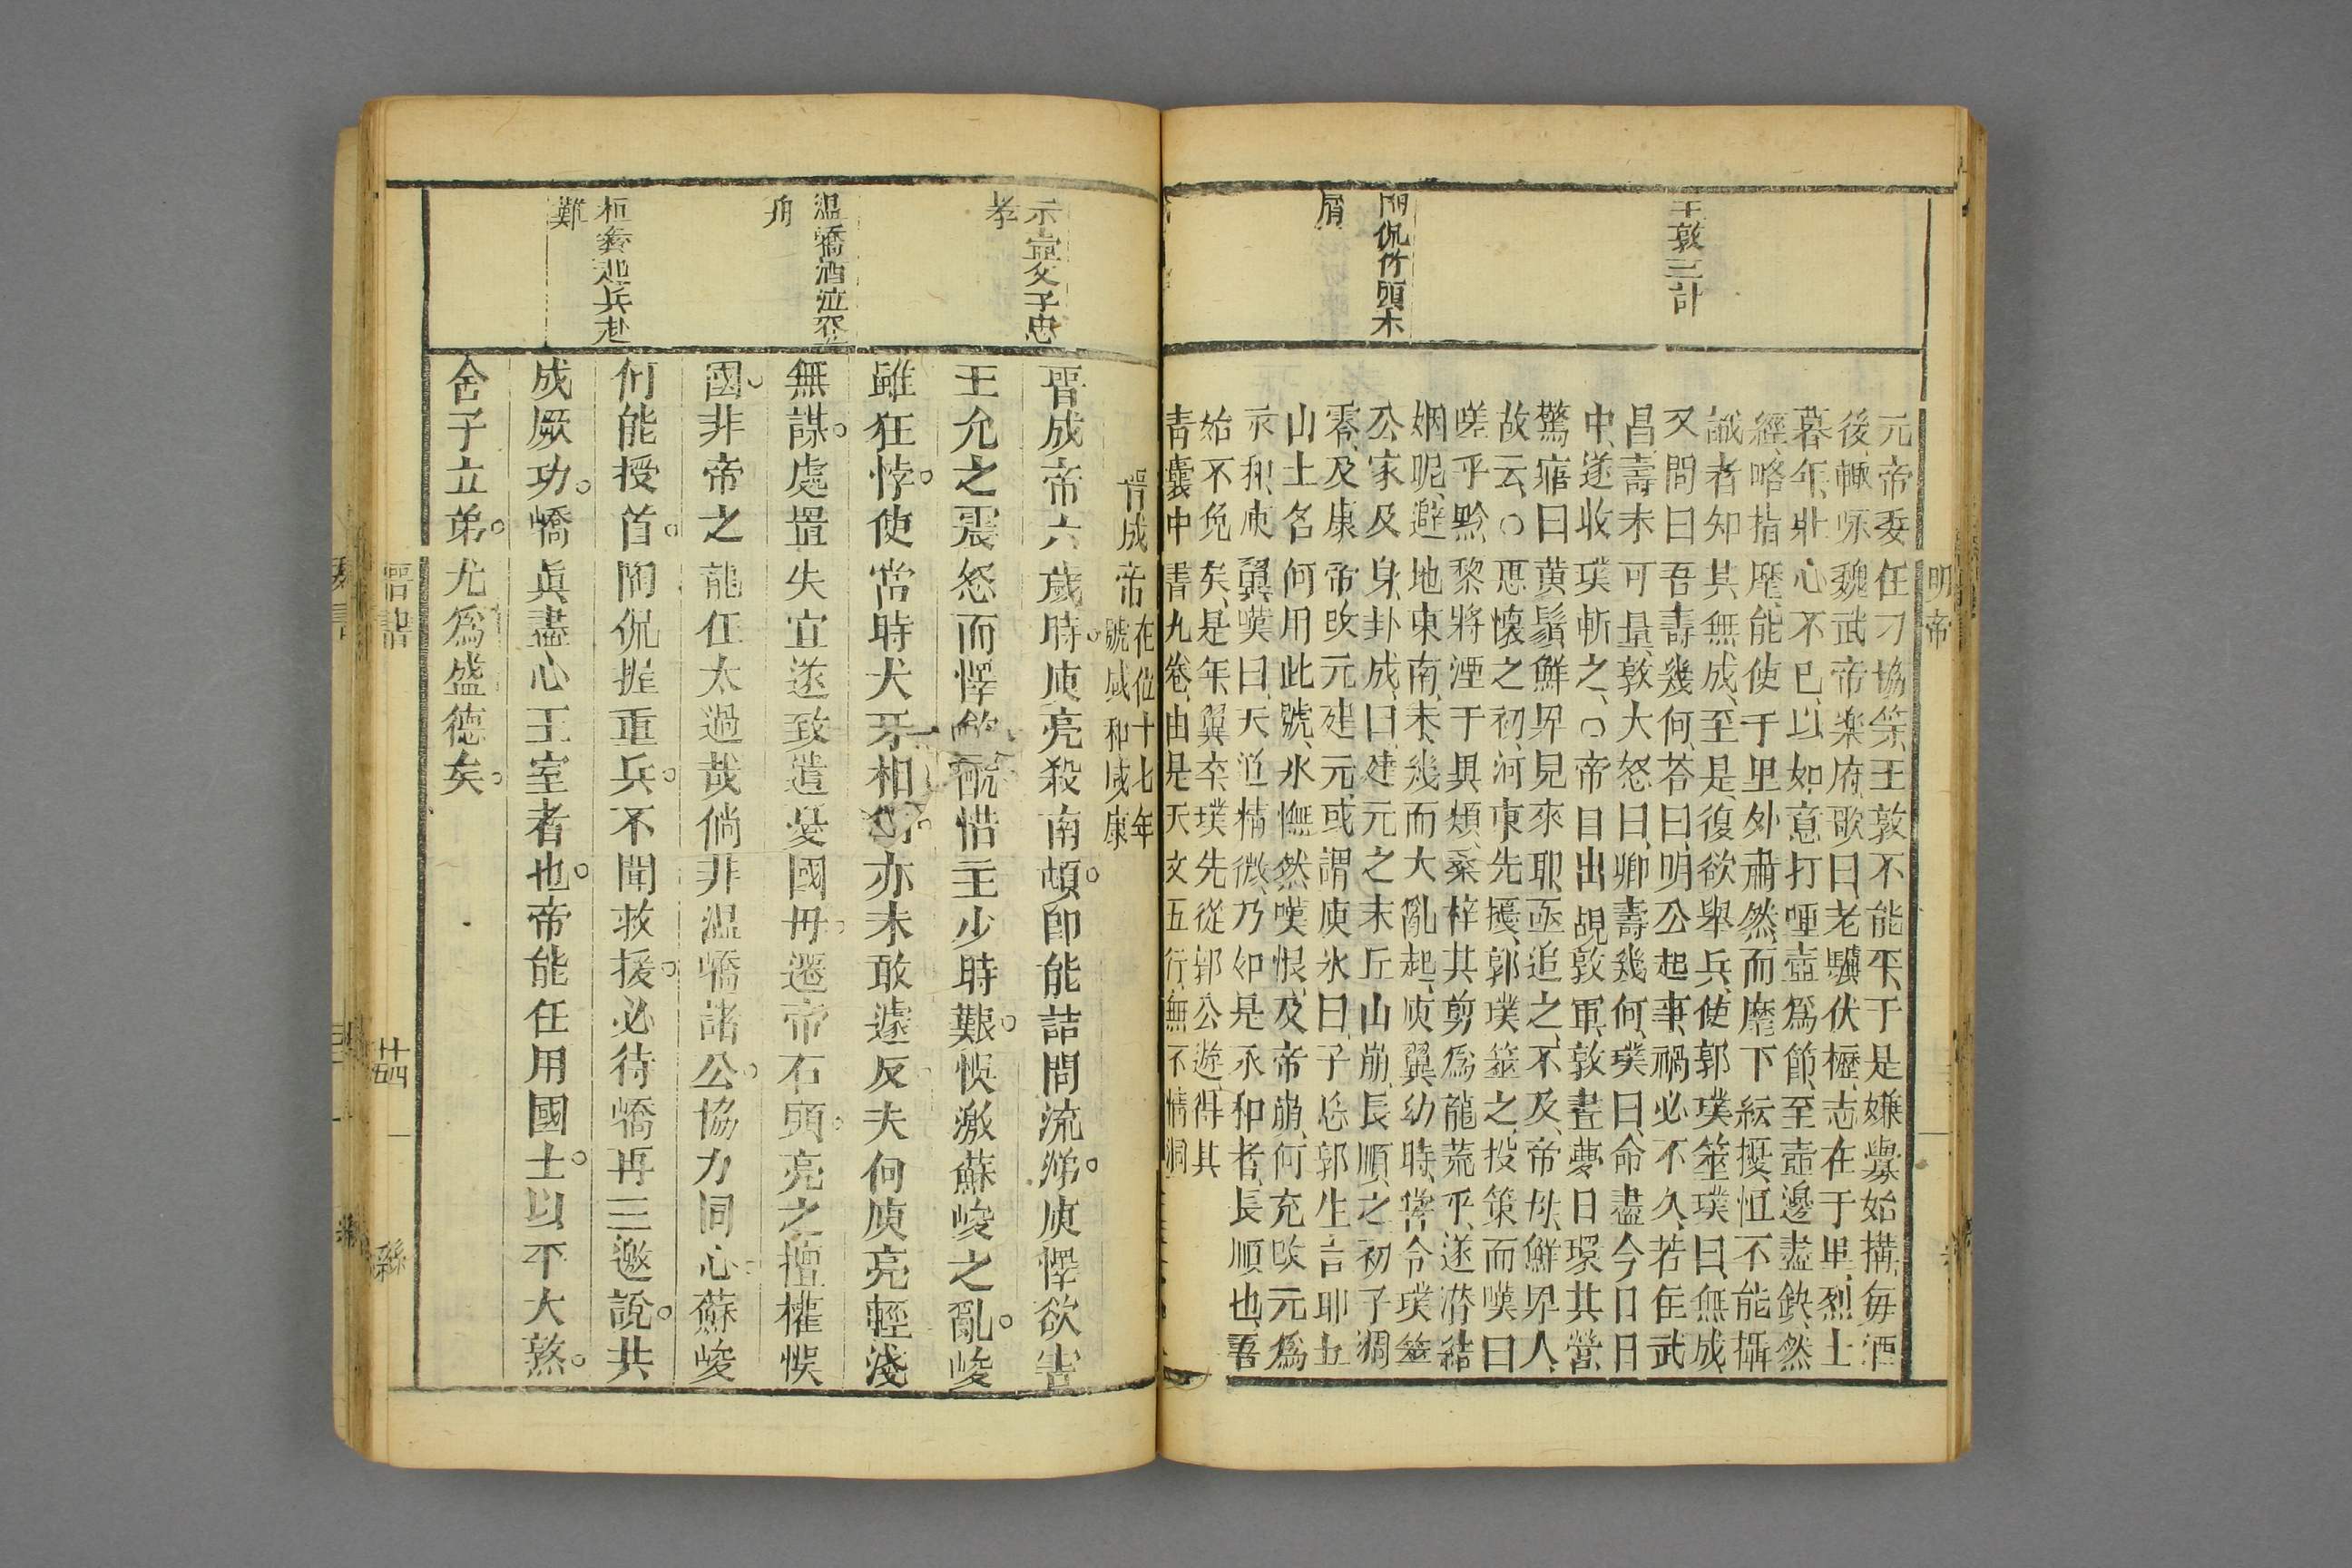 王敦三計
陶侃竹頭木
屑
明帝
元帝委任刁協等王敦不能平于是嫌釁始搆每酒
後輙咏魏武帝樂府歌曰老驥伏櫪志在千里烈士
暮年壯心不已以如意打唾壺爲節至壺邊盡鈌然
經略指麾能使千里外肅然而麾下紜擾恒不能攝
識者知其無成至是復欲舉兵使郭璞筮璞曰無成
又問曰吾壽幾何荅曰明公起事禍必不久若住武
昌壽未可量敦大怒曰卿壽幾何璞曰命盡今日日
中遂收璞斬之○帝自出覘敦軍敦晝夢日環其營
驚寤曰黄鬚鮮𢌿見來耶亟追之不及帝母鮮𢌿人
故云○惠懷之初河東先擾郭璞筮之投策而嘆曰
嗟乎黔黎將湮于異類桑梓其剪爲龍荒乎遂潛結
姻昵避地東南未幾而大亂起庾翼幼時嘗令璞筮
公家及身卦成曰建元之末丘山崩長順之初子凋
零及康帝改元建元或謂庾氷曰子忘郭生言耶丘
山上名何用此號氷憮然嘆恨及帝崩何充改元爲
永和庾翼嘆曰天道精微乃如是永和者長順也吾
始不免矣是年翼卒璞先從郭公遊得其
青囊中書九卷由是天文五行無不情洞
示壼父子忠
孝
温嶠酒泣登
舟
桓彝起兵赴
難
晋成帝在位十七年
號咸和咸康
晋成帝六歲時庾亮殺南頓即能詰問流涕庾懌欲害
王允之震怒而懌飲酖惜主少時艱悞激蘇峻之亂峻
雖狂悖使當時犬牙相制亦未敢遽反夫何庾亮輕淺
無謀處置失宜遂致遣憂國母遷帝石頭亮之擅權悞
國非帝之龍任太過哉倘非温嶠諸公協力同心蘇峻
何能授首陶侃握重兵不聞救援必待嶠再三邀說共
成厥功嶠眞盡心王室者也帝能任用國士以不大𣪁
舍子立弟尤爲盛德矣
晋譜
廿四